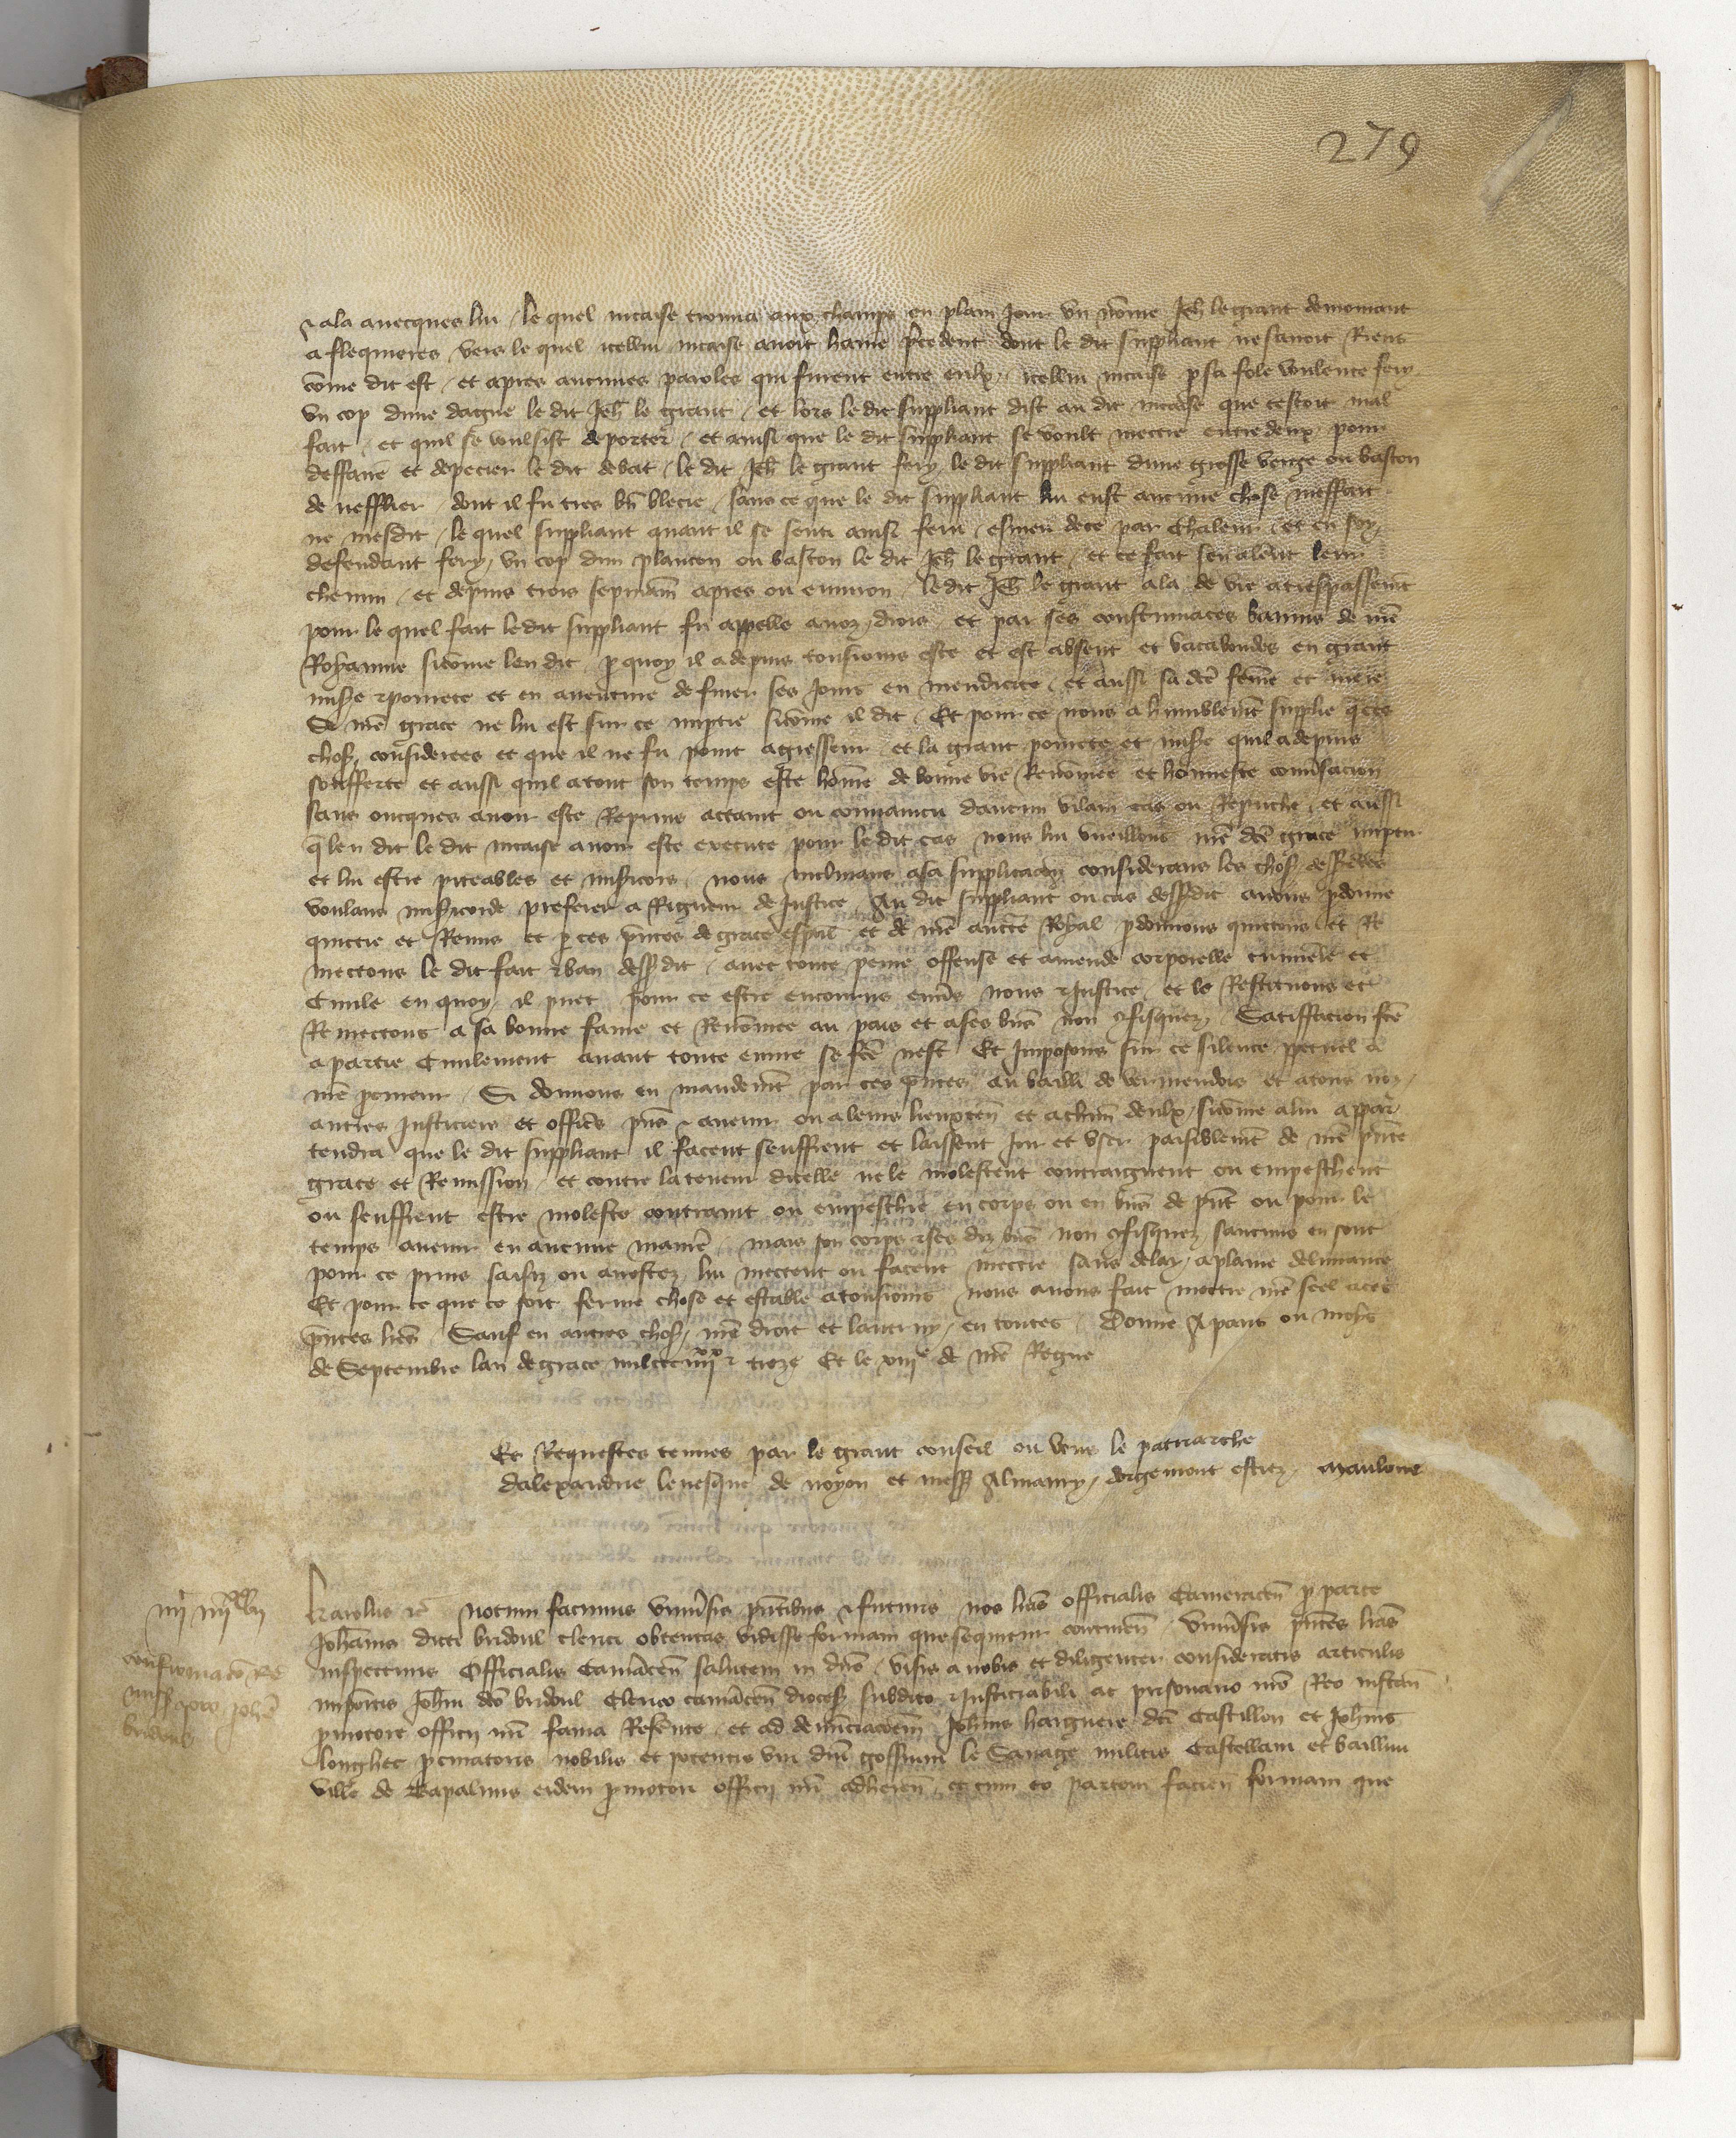 279
& ala avecques lui le quel nicaise trouva aux champs en plain jour un nōme Jeh̄ le grant demourant
a flequieres vers le quel icellui nicaise avoit haine p̄cedent dont le dit suppliant ne savoit Riens
cōme dit est et apres aucunes paroles qui furent entre eulx icellui nicaise p sa fole voulente fery
un cop dune dague le dit Jeh̄ le grant et lors le dit suppliant dist au dit nicaise que cestoit mal
fait et quil se voulsist deporter et ainsi que le dit suppliant se voult mectre entredeux pour
deffaire et depecier le dit debat le dit Jeh̄ le grant fery le dit suppliant dune grosse verge ou baston
de nefflier dont il fu tres bn̄ blecie sans ce que le dit suppliant lui eust aucune chose meffait
ne mesdit le quel suppliant quant il se senti ainsi feru esmeu de ce par chaleur et en soy
defendant fery un cop dun plancon ou baston le dit Jeh̄ le grant et ce fait sen alerent leur
chemin et depuis trois sepmain̄ apres ou environ le dit Jeh̄ le grant ala de vie a trespassemt̄
pour le quel fait le dit suppliant fu appelle a noz drois et par ses contumaces bannis de nr̄e
Royaume sicōme len dit p quoy il a depuis tousiours este et est absent et vacabondes en grant
mis̄e & povrete et en aventure de finer ses jours en mendicite et aussi sa dcē fēme et mere
Se nr̄e grace ne lui est sur ce imptie sicōme il dit Et pour ce nous a humblemt̄ supplie q̄ ces
chos̄ considerees et que il ne fu point agresseur et la grant povrete et mis̄e quil a depuis
soufferte et aussi quil a tout son temps este hōme de bonne vie Renōmee et honneste conv̄sacion
sans oncques avoir este Reprins actaint ou convaincu daucun vilain cas ou Reprouche et aussi
q̄ len dit le dit nicaise avoir este execute pour le dit cas nous lui vueillons nr̄e dcē grace imptir
et lui estre piteables et mis̄icors nous inclinans a sa supplicacion considerans les chos̄ dessdcēs
voulans mis̄icorde preferer a Rigueur de Justice Au dit suppliant ou cas dessdit avons pdonne
quictie et Remis et p ces p̄ntes de grace esp̄ail et de nr̄e aucte Royal pdonnons quictons et Re
mectons le dit fait & ban dessdit avec toute peine offense et amende corporelle crimīele et
Civile en quoy il puet pour ce estre encourus envs̄ nous & Justice et le Restituons et
Remectons a sa bonne fame et Renōmee au pais et a ses bnēs non ɔfisquez Satiffacion fcē
a partie Civilement avant toute euvre se fcē nest Et Imposons sur ce silence ppetuel a
nr̄e pcureur Si donnons en mandemt̄ par ces p̄ntes au bailli de vermendois et a tous noz
autres justiciers et offics̄ pn̄s & avenir ou a leurs lieuxten̄ et a chūn deulx sicōme a lui appar
tendra que le dit suppliant il facent seuffrent et laissent joir et user paisiblemt̄ de nr̄e p̄nte
grace et Remission et contre la teneur dicelle ne le molestent contraignent ou empeschent
ou seuffrent estre moleste contraint ou empeschie en corps ou en bnēs de pn̄t ou pour le
temps avenir en aucune manr̄e mais son corps & ses diz bnēs non ɔfisquez saucuns en sont
pour ce prins saisiz ou arrestez lui mectent ou facent mectre sans delay a plaine delivrance
Et pour ce que ce soit ferme chose et estable a tousiours nous avons fait mectre nr̄e seel a ces
p̄ntes lrēs Sauf en autres chos̄ nr̄e droit et lautruy en toutes Donne A paris ou mois
de Septembre lan de grace mil ccc iiiixx & treze Et le xiiiie de nr̄e Regne
Es Requestes tenues par le grant conseil ou vous le patriarche
dalexandrie levesque de noyon et mess Almaury dorgemont estiez maulone
iiic iiiixx vii
confirmacō Re
miss̄ pro Joh̄e
bridoul
Karolus &c̄ notum facimus univs̄is pn̄tibus & futuris nos lrās officialis Cameracen̄ pro parte
Joh̄annis dicti bridoul clerici obtentas vidisse formam que sequitur continen̄ Univs̄is pn̄tes lrās
inspecturis Officialis Camacen̄ salutem in dnō visis a nobis et diligenter consideratis articulis
impōitis Joh̄i dcō bridoul Clerico camacen̄ dioces̄ subdito & Justiciabili ac prisonario nrō Reo instan̄
pmotore officii nrī fama Referente et ad denunciacoēm Joh̄nis harguere dcī Castillon et Joh̄nis
longhec pcuratoris nobilis et potentis viri dnī gossuini le Sauvage militis Castellani et baillivi
ville de Capalinis eidem pmotori officii nrī adheren̄ et cum eo partem facien̄ formam que